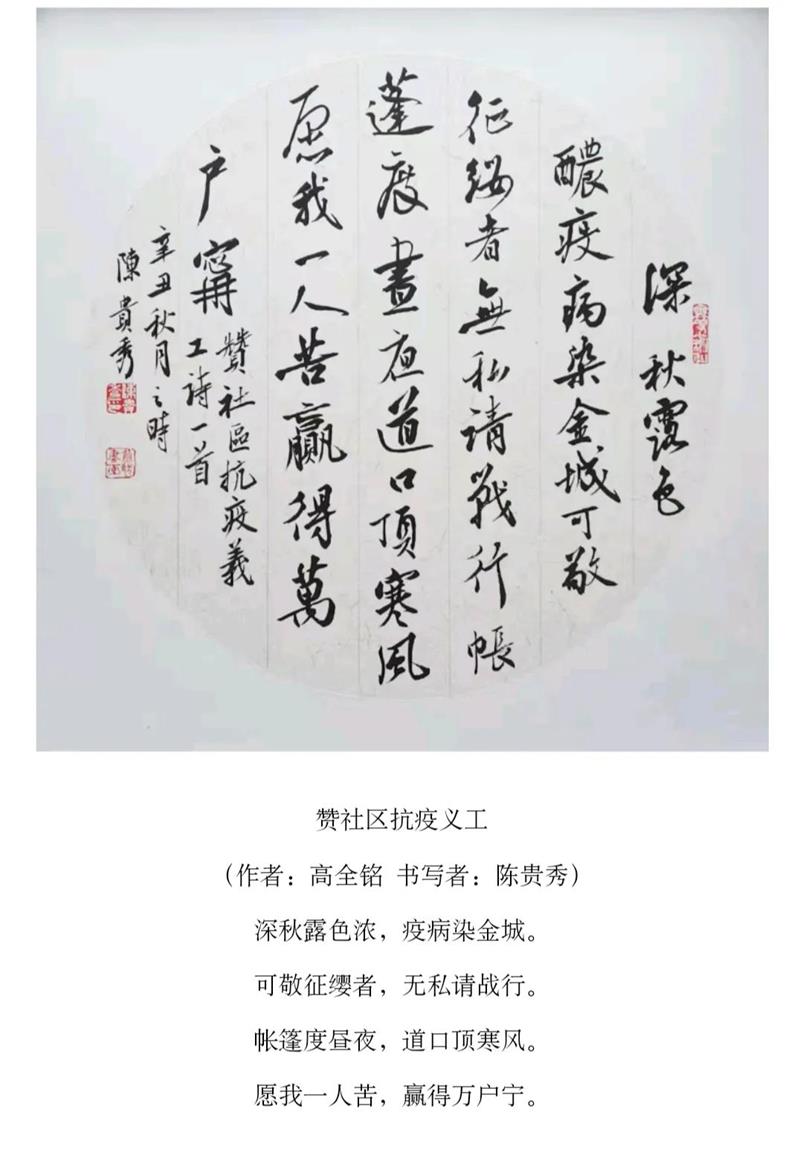 深秋露色
醲疫病染金城可敬
征缨者無私请戰行帳
蓬度晝夜道口頂寒風
愿我一人苦赢得萬
户甯
赞社區抗疫義
工诗一首
辛丑秋月之時
陳貴秀
赞社区抗疫义工
（作者：高全铭 书写者：陈贵秀）
深秋露色浓，疫病染金城。
可敬征缨者，无私请战行。
帐篷度昼夜，道口顶寒风。
愿我一人苦，赢得万户宁。